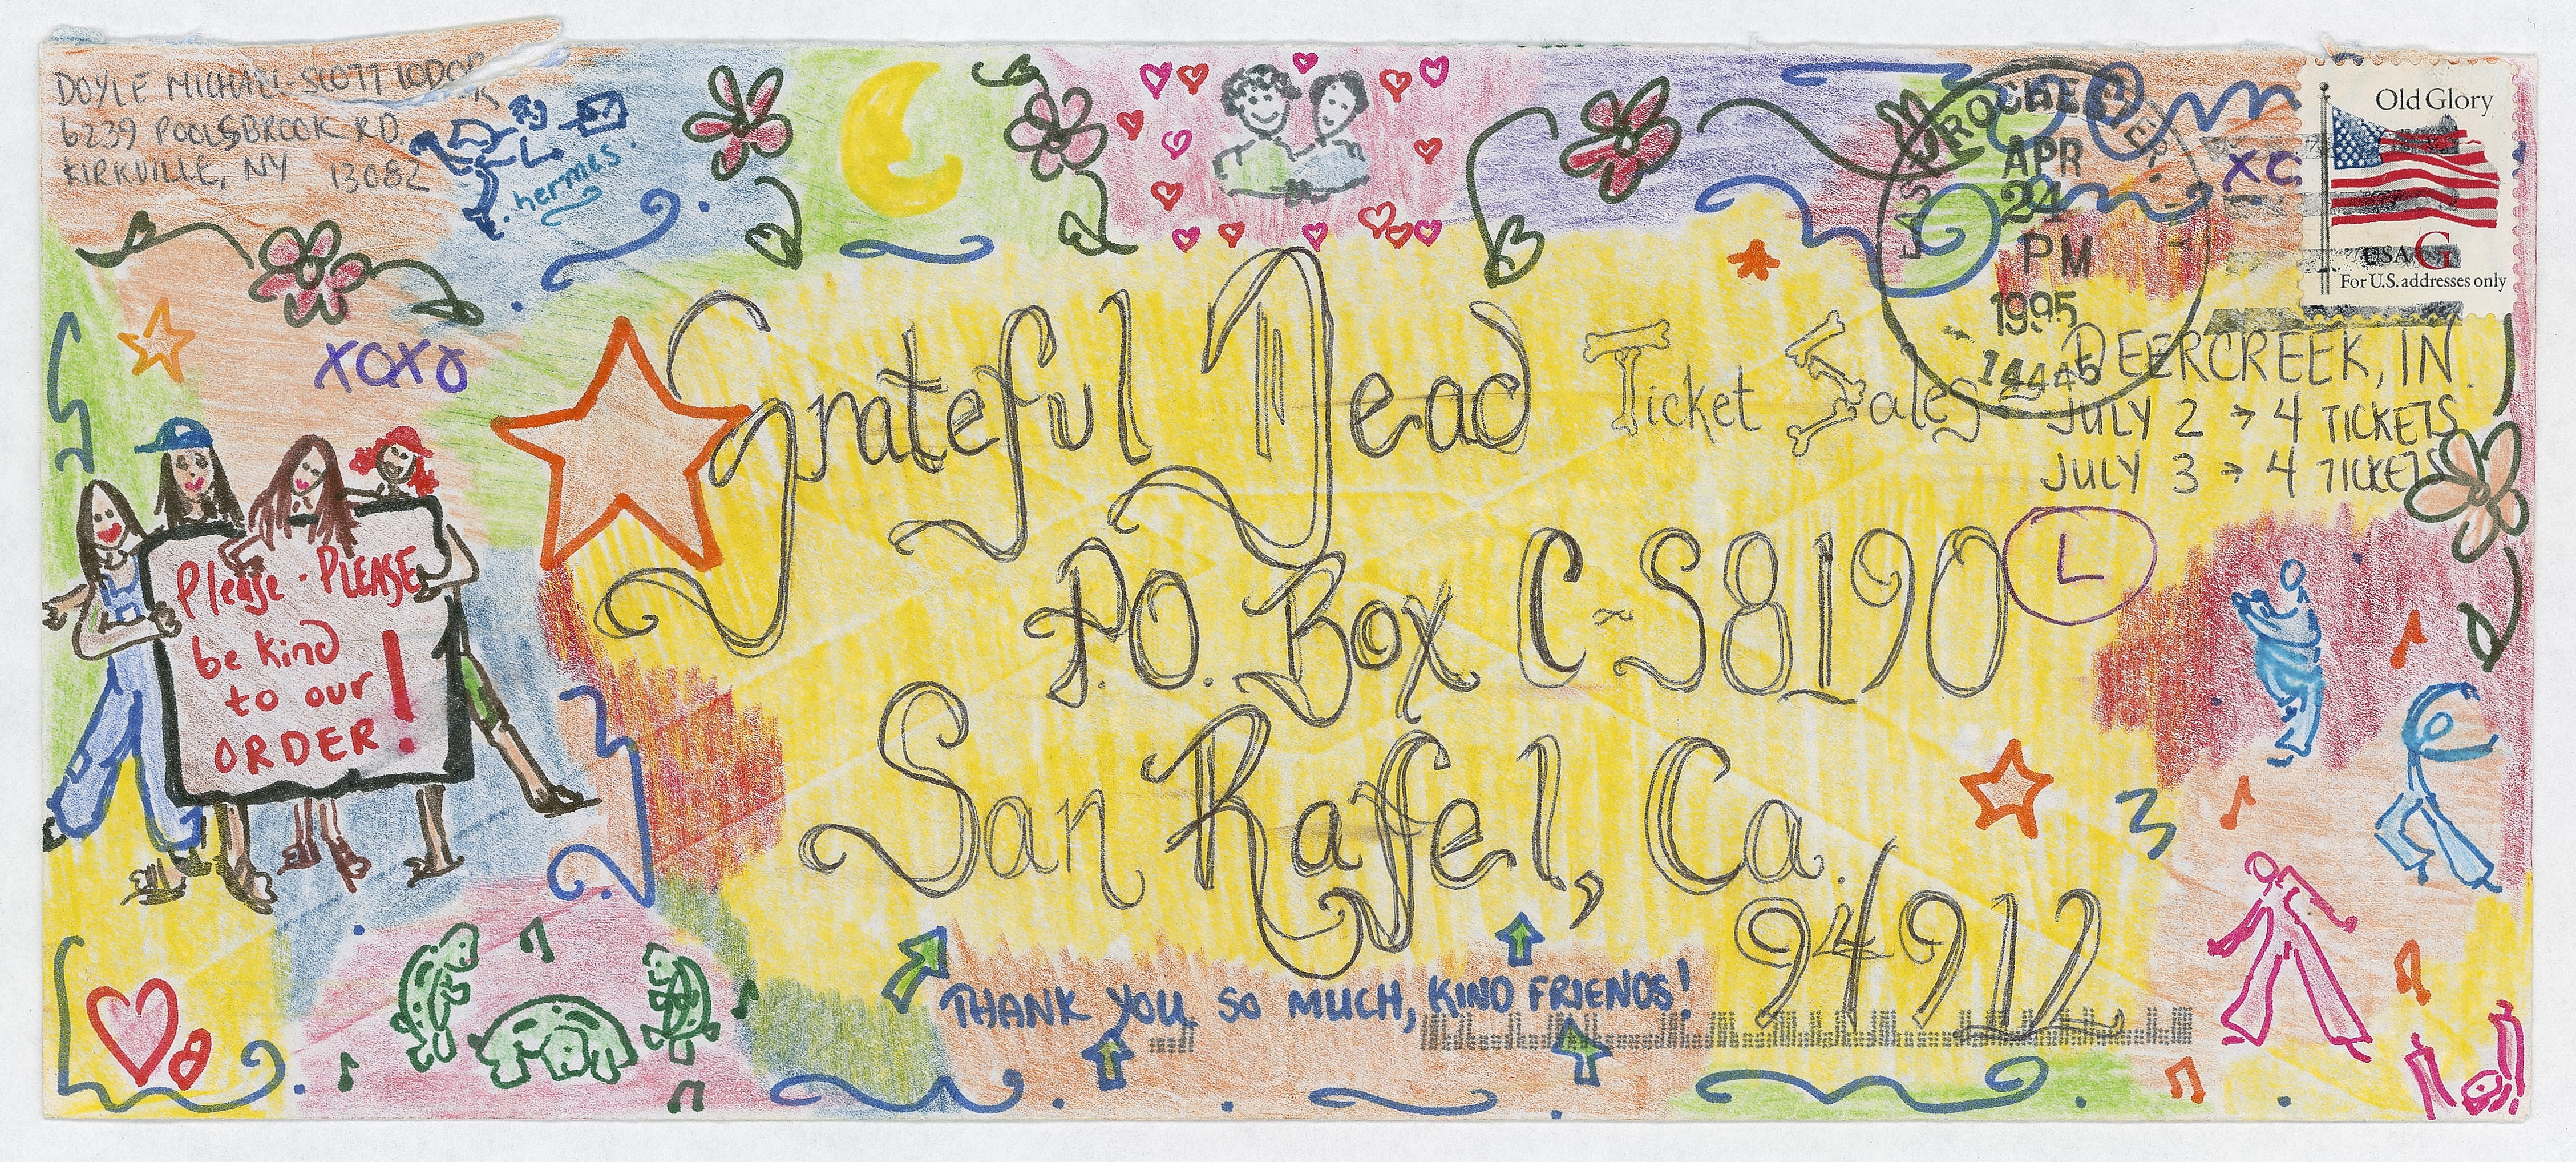 DOYLE MICHAEL-SCOTT
6239 POOLSBROOK RD.
KIRKVILLE, NY 13082
hermes.
EAST ROCHESTER
APR
24
PM
1995
14445
XO
Old Glory
USA G
For U.S. addresses only
XOXO
Grateful Dead Ticket Sales
P.O. Box C-S8190
San Rafel, Ca.
94912
DEERCREEK, IN.
JULY 2 → 4 TICKETS
JULY 3 → 4 TICKETS
L
Please - PLEASE
be kind
to our
ORDER!
THANK YOU SO MUCH, KIND FRIENDS!